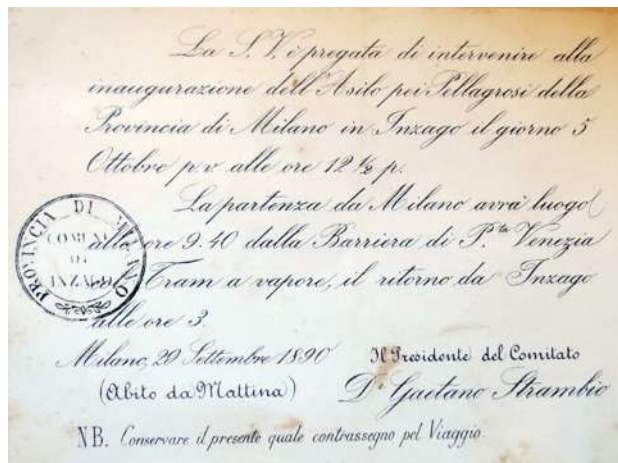 La S. V. è pregata di intervenire alla
inaugurazione dell'Asilo pei Pellagrosi della
Provincia di Milano in Inzago il giorno 5
Ottobre p. v. alle ore 12 ½ p.
La partenza da Milano avrà luogo
alle ore 9.40 dalla Barriera di P.ta Venezia
Tram a vapore, il ritorno da Inzago
alle ore 3.
PROVINCIA DI MILANO
COMUNE
DI
INZAGO
Milano, 29 Settembre 1890
Il Presidente del Comitato
(Abito da Mattina)
Dr. Gaetano Strambio
NB. Conservare il presente quale contrassegno pel Viaggio.